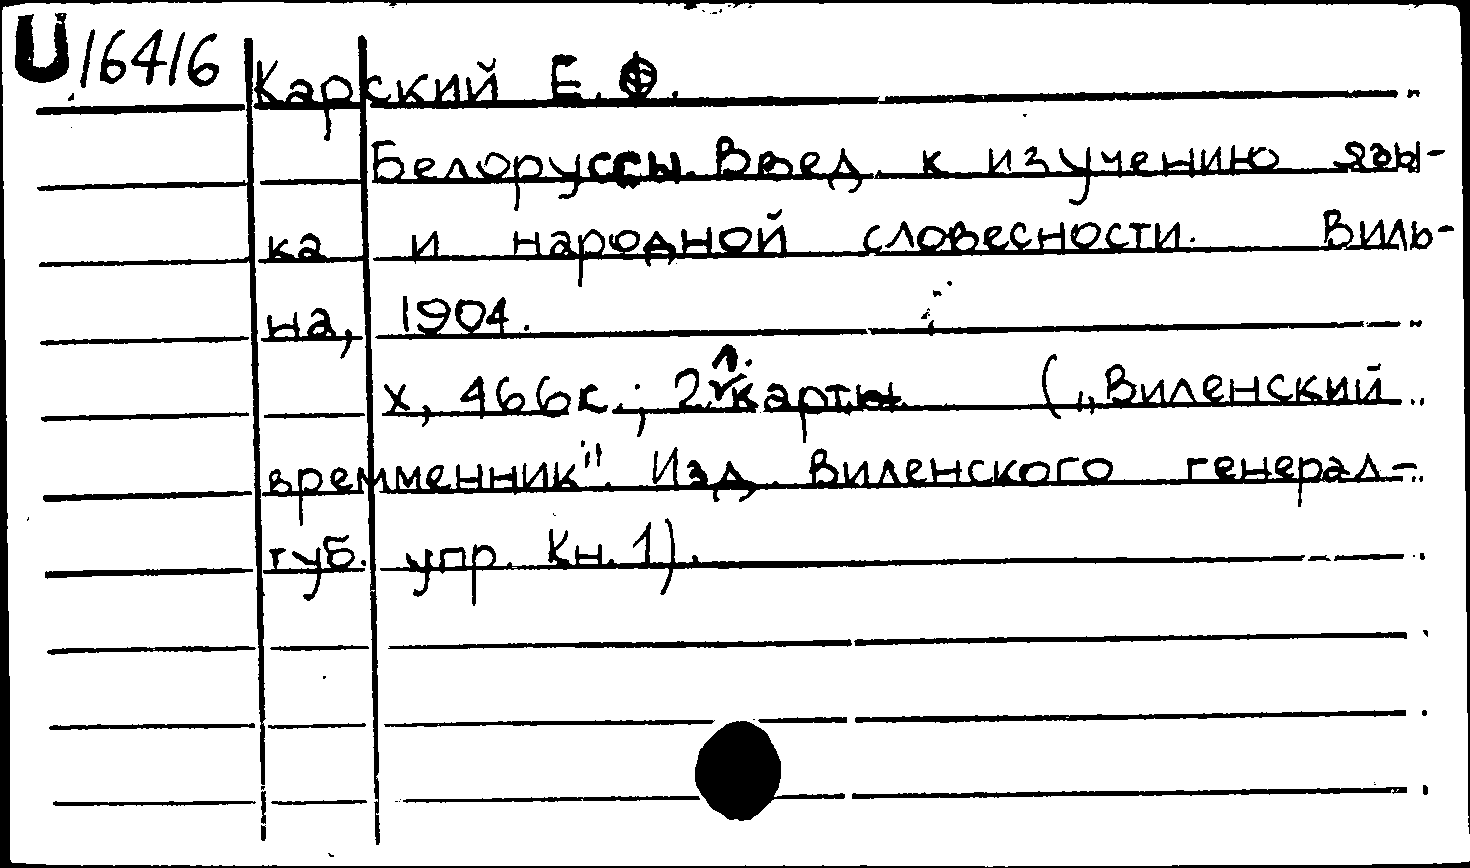 U/6416
Карский Е.Ф.
Белоруссы. Введ. к изучению язы-
ка и народной словесности. Виль-
на, 1904.
x, 466 с.; 2 л. карт. („Виленский
временник". Изд. Виленского генерал-
губ. упр. Кн. 1).